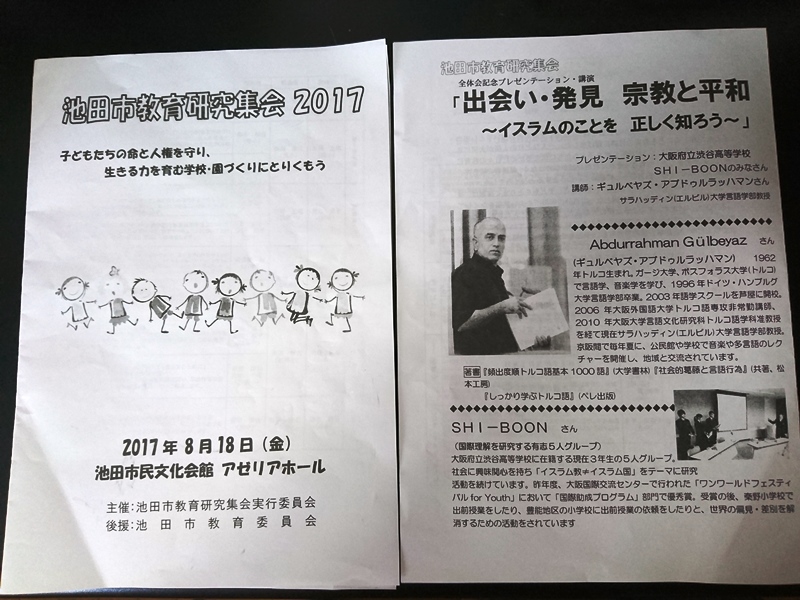 池田市教育研究集会 2017
子どもたちの命と人権を守り、
生きる力を育む学校・園づくりにとりくもう
2017年8月18日（金）
池田市民文化会館 アゼリアホール
主催:池田市教育研究集会実行委員会
後援:池田市教育委員会
池田市教育研究集会
全体会記念プレゼンテーション・講演
「出会い・発見 宗教と平和
～イスラムのことを 正しく知ろう～」
プレゼンテーション：大阪府立渋谷高等学校
SHI－BOONのみなさん
講師：ギュルベヤズ・アブドゥルラッハマンさん
サラハッディン(エルビル)大学言語学部教授
Abdurrahman Gülbeyaz さん
(ギュルベヤズ・アブドゥルラッハマン) 1962
年トルコ生まれ。ガージ大学、ボスフォラス大学(トルコ)
で言語学、音楽学を学び、1996年ドイツ・ハンブルグ
大学言語学部卒業。2003年語学スクールを芦屋に開校。
2006年大阪外国語大学トルコ語専攻非常勤講師、
2010年大阪大学言語文化研究科トルコ語学科准教授
を経て現在サラハッディン(エルビル)大学言語学部教授。
京阪間で毎年夏に、公民館や学校で音楽や多言語のレク
チャーを開催し、地域と交流されています。
著書『頻出度順トルコ語基本1000語』(大学書林)『社会的葛藤と言語行為』(共著、松
本工房)
『しっかり学ぶトルコ語』(ベレ出版)
SHI－BOON さん
(国際理解を研究する有志5人グループ)
大阪府立渋谷高等学校に在籍する現在3年生の5人グループ。
社会に興味関心を持ち「イスラム教≠イスラム国」をテーマに研究
活動を続けています。昨年度、大阪国際交流センターで行われた「ワンワールドフェスティ
バル for Youth」において「国際助成プログラム」部門で優秀賞。受賞の後、秦野小学校で
出前授業をしたり、豊能地区の小学校に出前授業の依頼をしたりと、世界の偏見・差別を解
消するための活動をされています